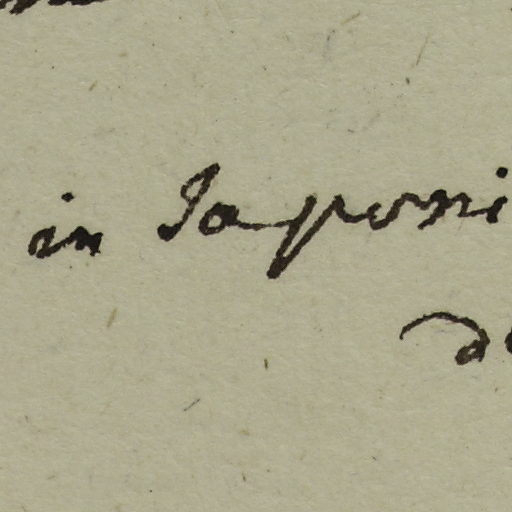 in Japoni